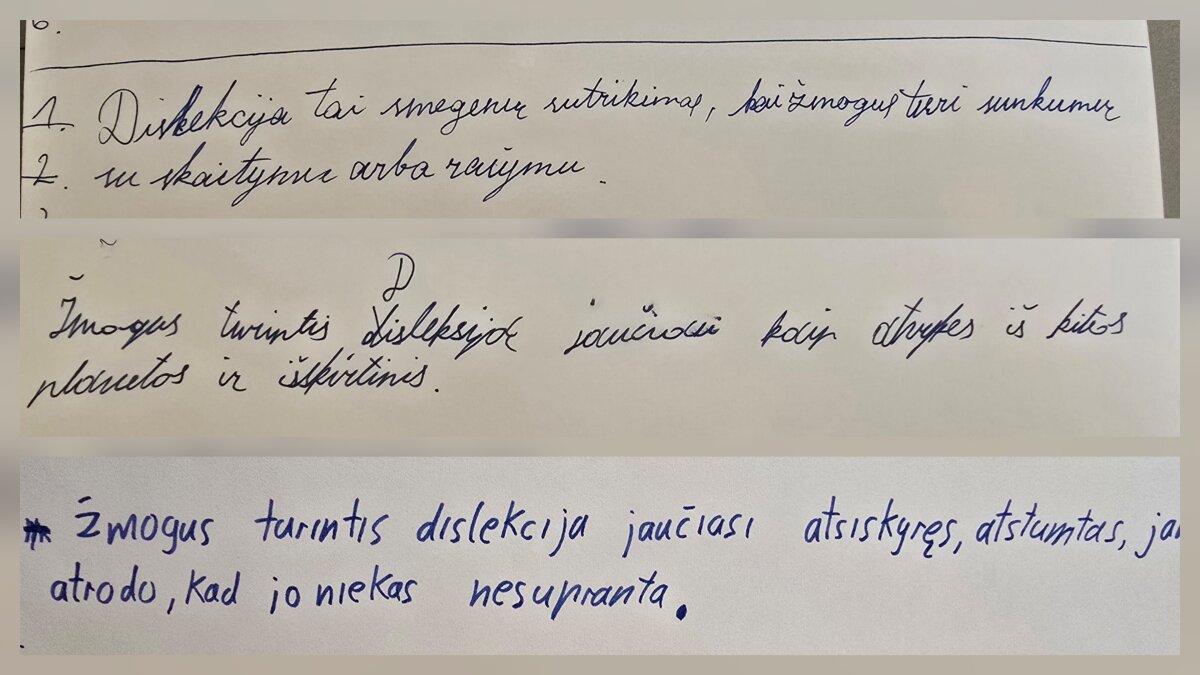 6.
1. Dislekcija tai smegenų sutrikimas, kai žmogus turi sunkumų
2. su skaitymu arba rašymu.
D
Žmogus turintis disleksiją jaučiasi kaip atvykęs iš kitos
planetos ir išskirtinis.
Žmogus turintis dislekcija jaučiasi atsiskyręs, atstumtas, jam
atrodo, kad jo niekas nesupranta.